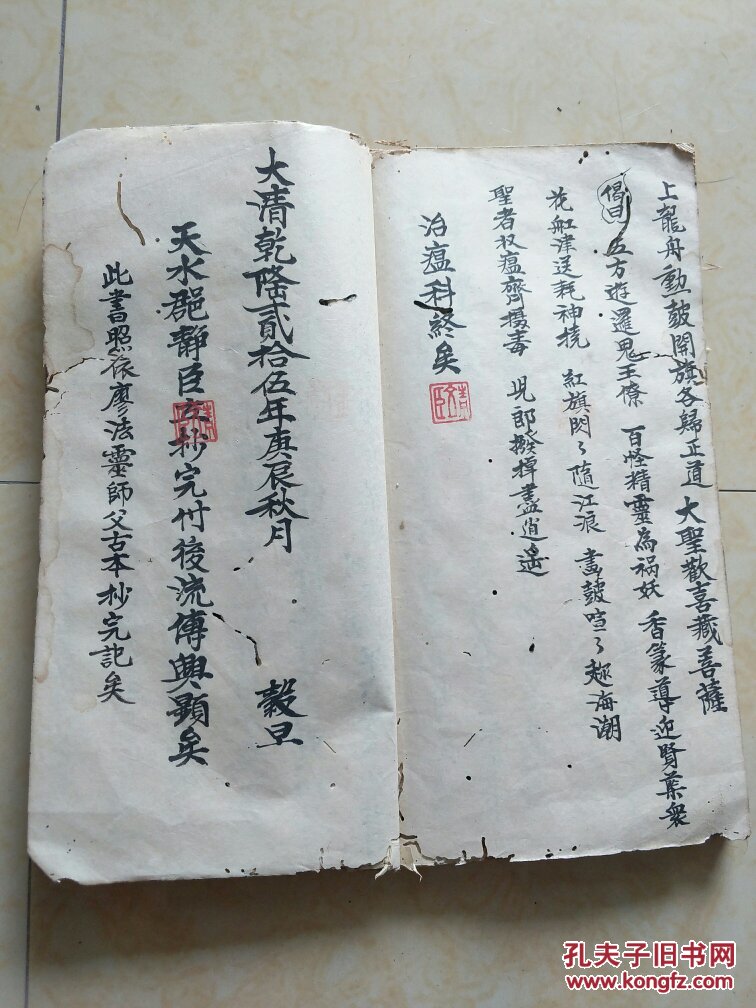 上龍舟動皷開旗各歸正道 大聖歡喜藏菩薩
偈曰 五方遊邏鬼王僚 百怪精靈為禍妖 香篆導迎賢葉衆
花船津送耗神橈 紅旗閃々隨江浪 畫皷喧々趂海潮
聖者收瘟齊摄毒 児郎撥棹盡逍遥
治瘟科終矣
大清乾隆貳拾伍年庚辰秋月 穀旦
天水郡静臣立抄完付後流傳興顕矣
此書照依廖法靈師父古本抄完記矣
孔夫子旧书网
www.kongfz.com